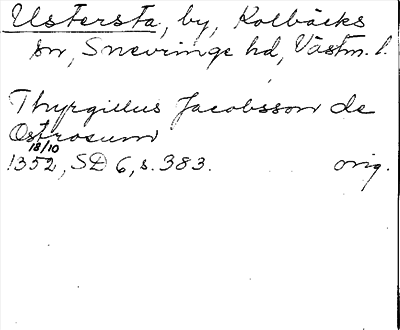 Ustersta, by, Kolbäcks
sn, Snevringe hd, Västm. l.
Thyrgillus Jacobsson de
Ostrosum
18/10
1352, SD 6, s. 383. orig.